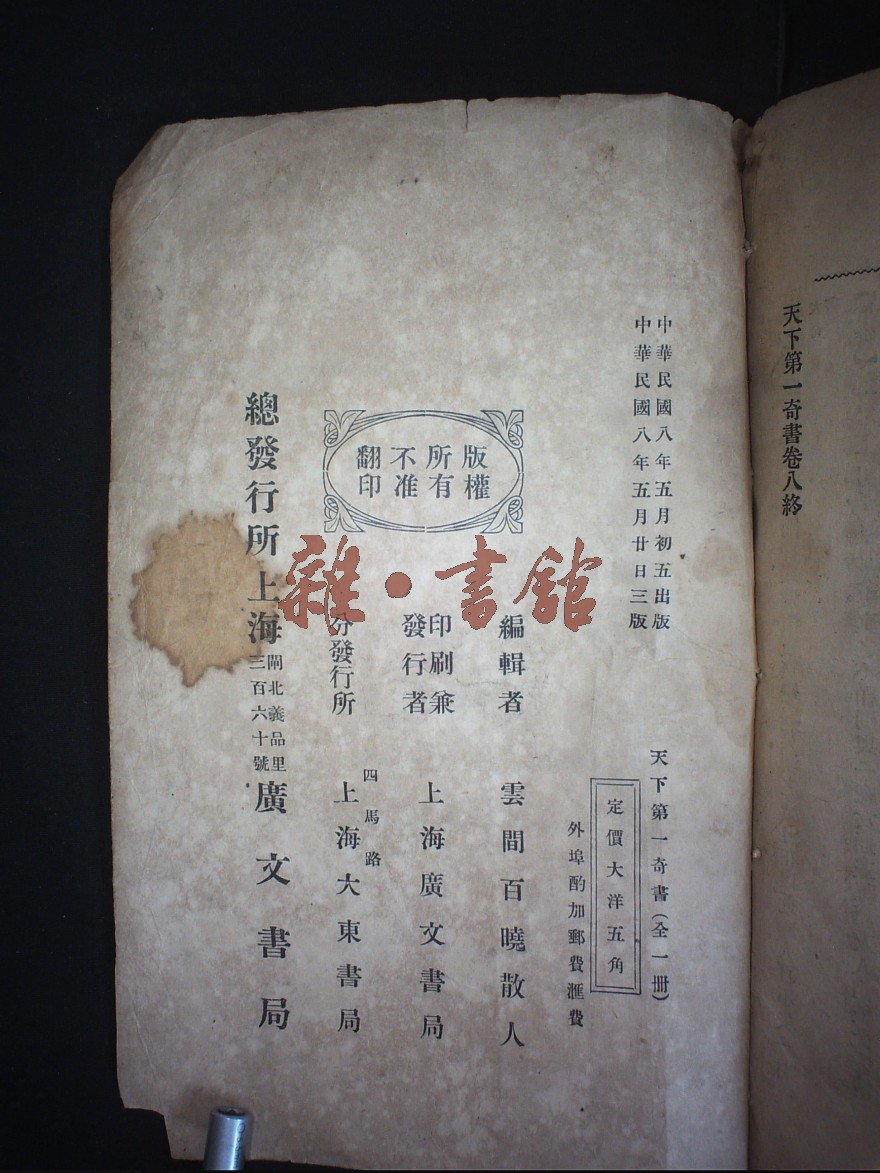 天下第一奇書卷八終
中華民國八年五月初五出版
中華民國八年五月廿日三版
天下第一奇書(全一册)
定價大洋五角
外埠酌加郵費滙費
版權
所有
不准
翻印
編輯者 雲間百曉散人
印刷兼
發行者 上海廣文書局
分發行所 四馬路 上海大東書局
總發行所 上海 閘北義品里
三百六十號 廣文書局
雜·書館